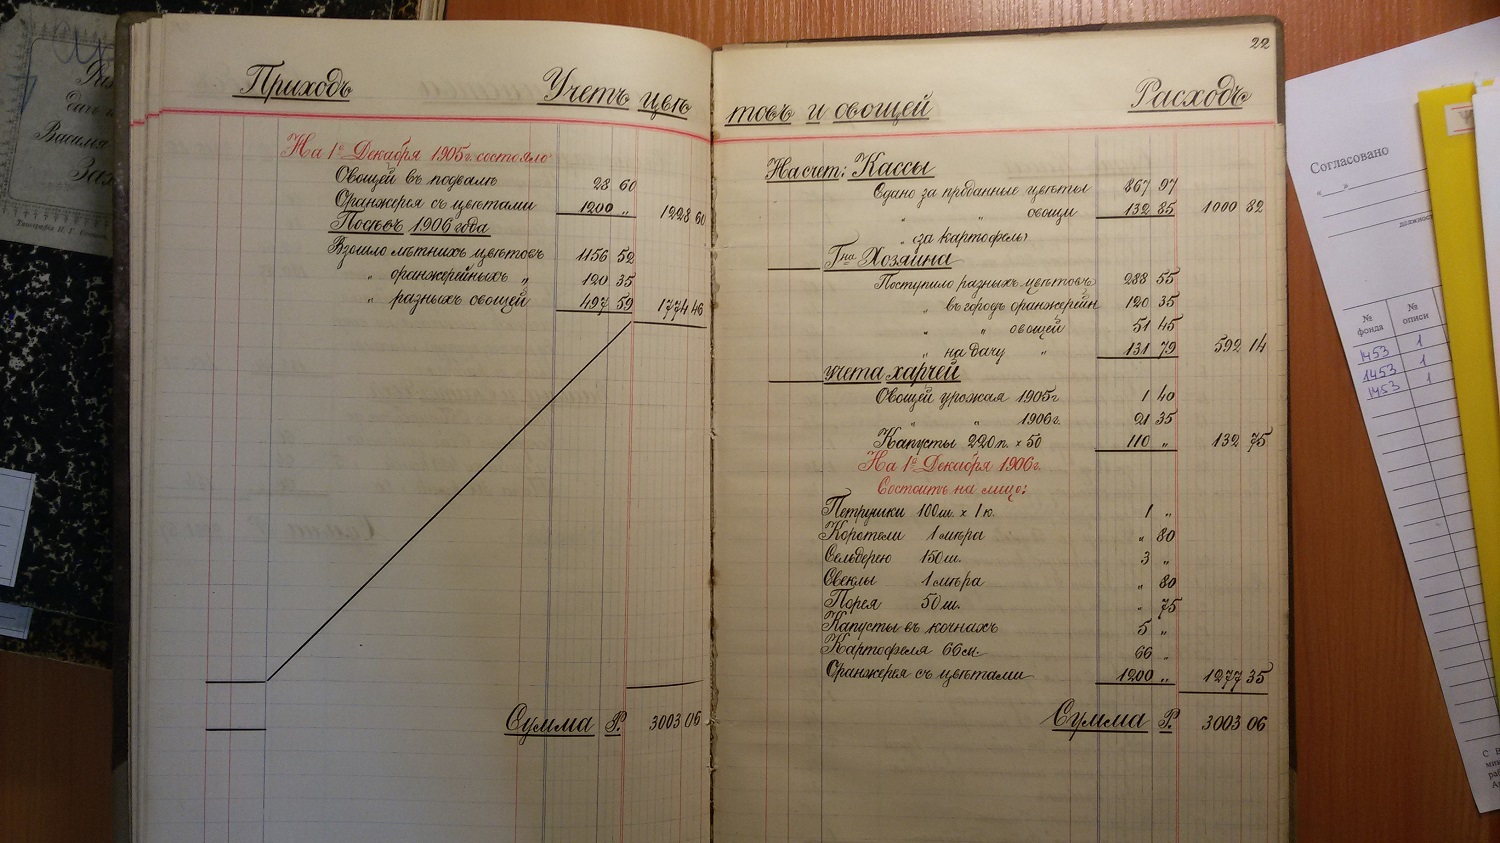 Приходъ Учетъ цвѣ
На 1е Декабря 1905 г. состояло
Овощей въ подвалѣ 28 60
Оранжерея съ цвѣтами 1200 „ 1228 60
Посѣвъ 1906 года
Взошло лѣтнихъ цвѣтовъ 1156 52
„ оранжерейныхъ „ 120 35
„ разныхъ овощей 497 59 1774 46
Сумма Р. 3003 06
22
товъ и овощей Расходъ
На счет: Кассы
Сдано за проданные цвѣты 867 97
„ „ овощи 132 85 1000 82
„ за картофель
Гна Хозяина
Поступило разныхъ цвѣтовъ 288 55
„ въ городъ оранжерейн 120 35
„ „ овощей 51 45
„ на дачу „ 131 79 592 14
учета харчей
Овощей урожая 1905 г 1 40
„ „ 1906 г. 21 35
Капусты 220 п. х 50 110 „ 132 75
На 1е Декабря 1906 г.
Состоитъ на лицо:
Петрушки 100 ш. х 1 к. 1 „
Коротели 1 мѣра „ 80
Сельдерею 150 ш. 3 „
Свеклы 1 мѣра „ 80
Порея 50 ш. „ 75
Капусты въ кочнахъ 5 „
Картофеля 66 м. 66 „
Оранжерея съ цвѣтами 1200 „ 1277 35
Сумма Р. 3003 06
Василья
Согласовано
« »
№ фонда № описи
1453 1
1453 1
1453 1